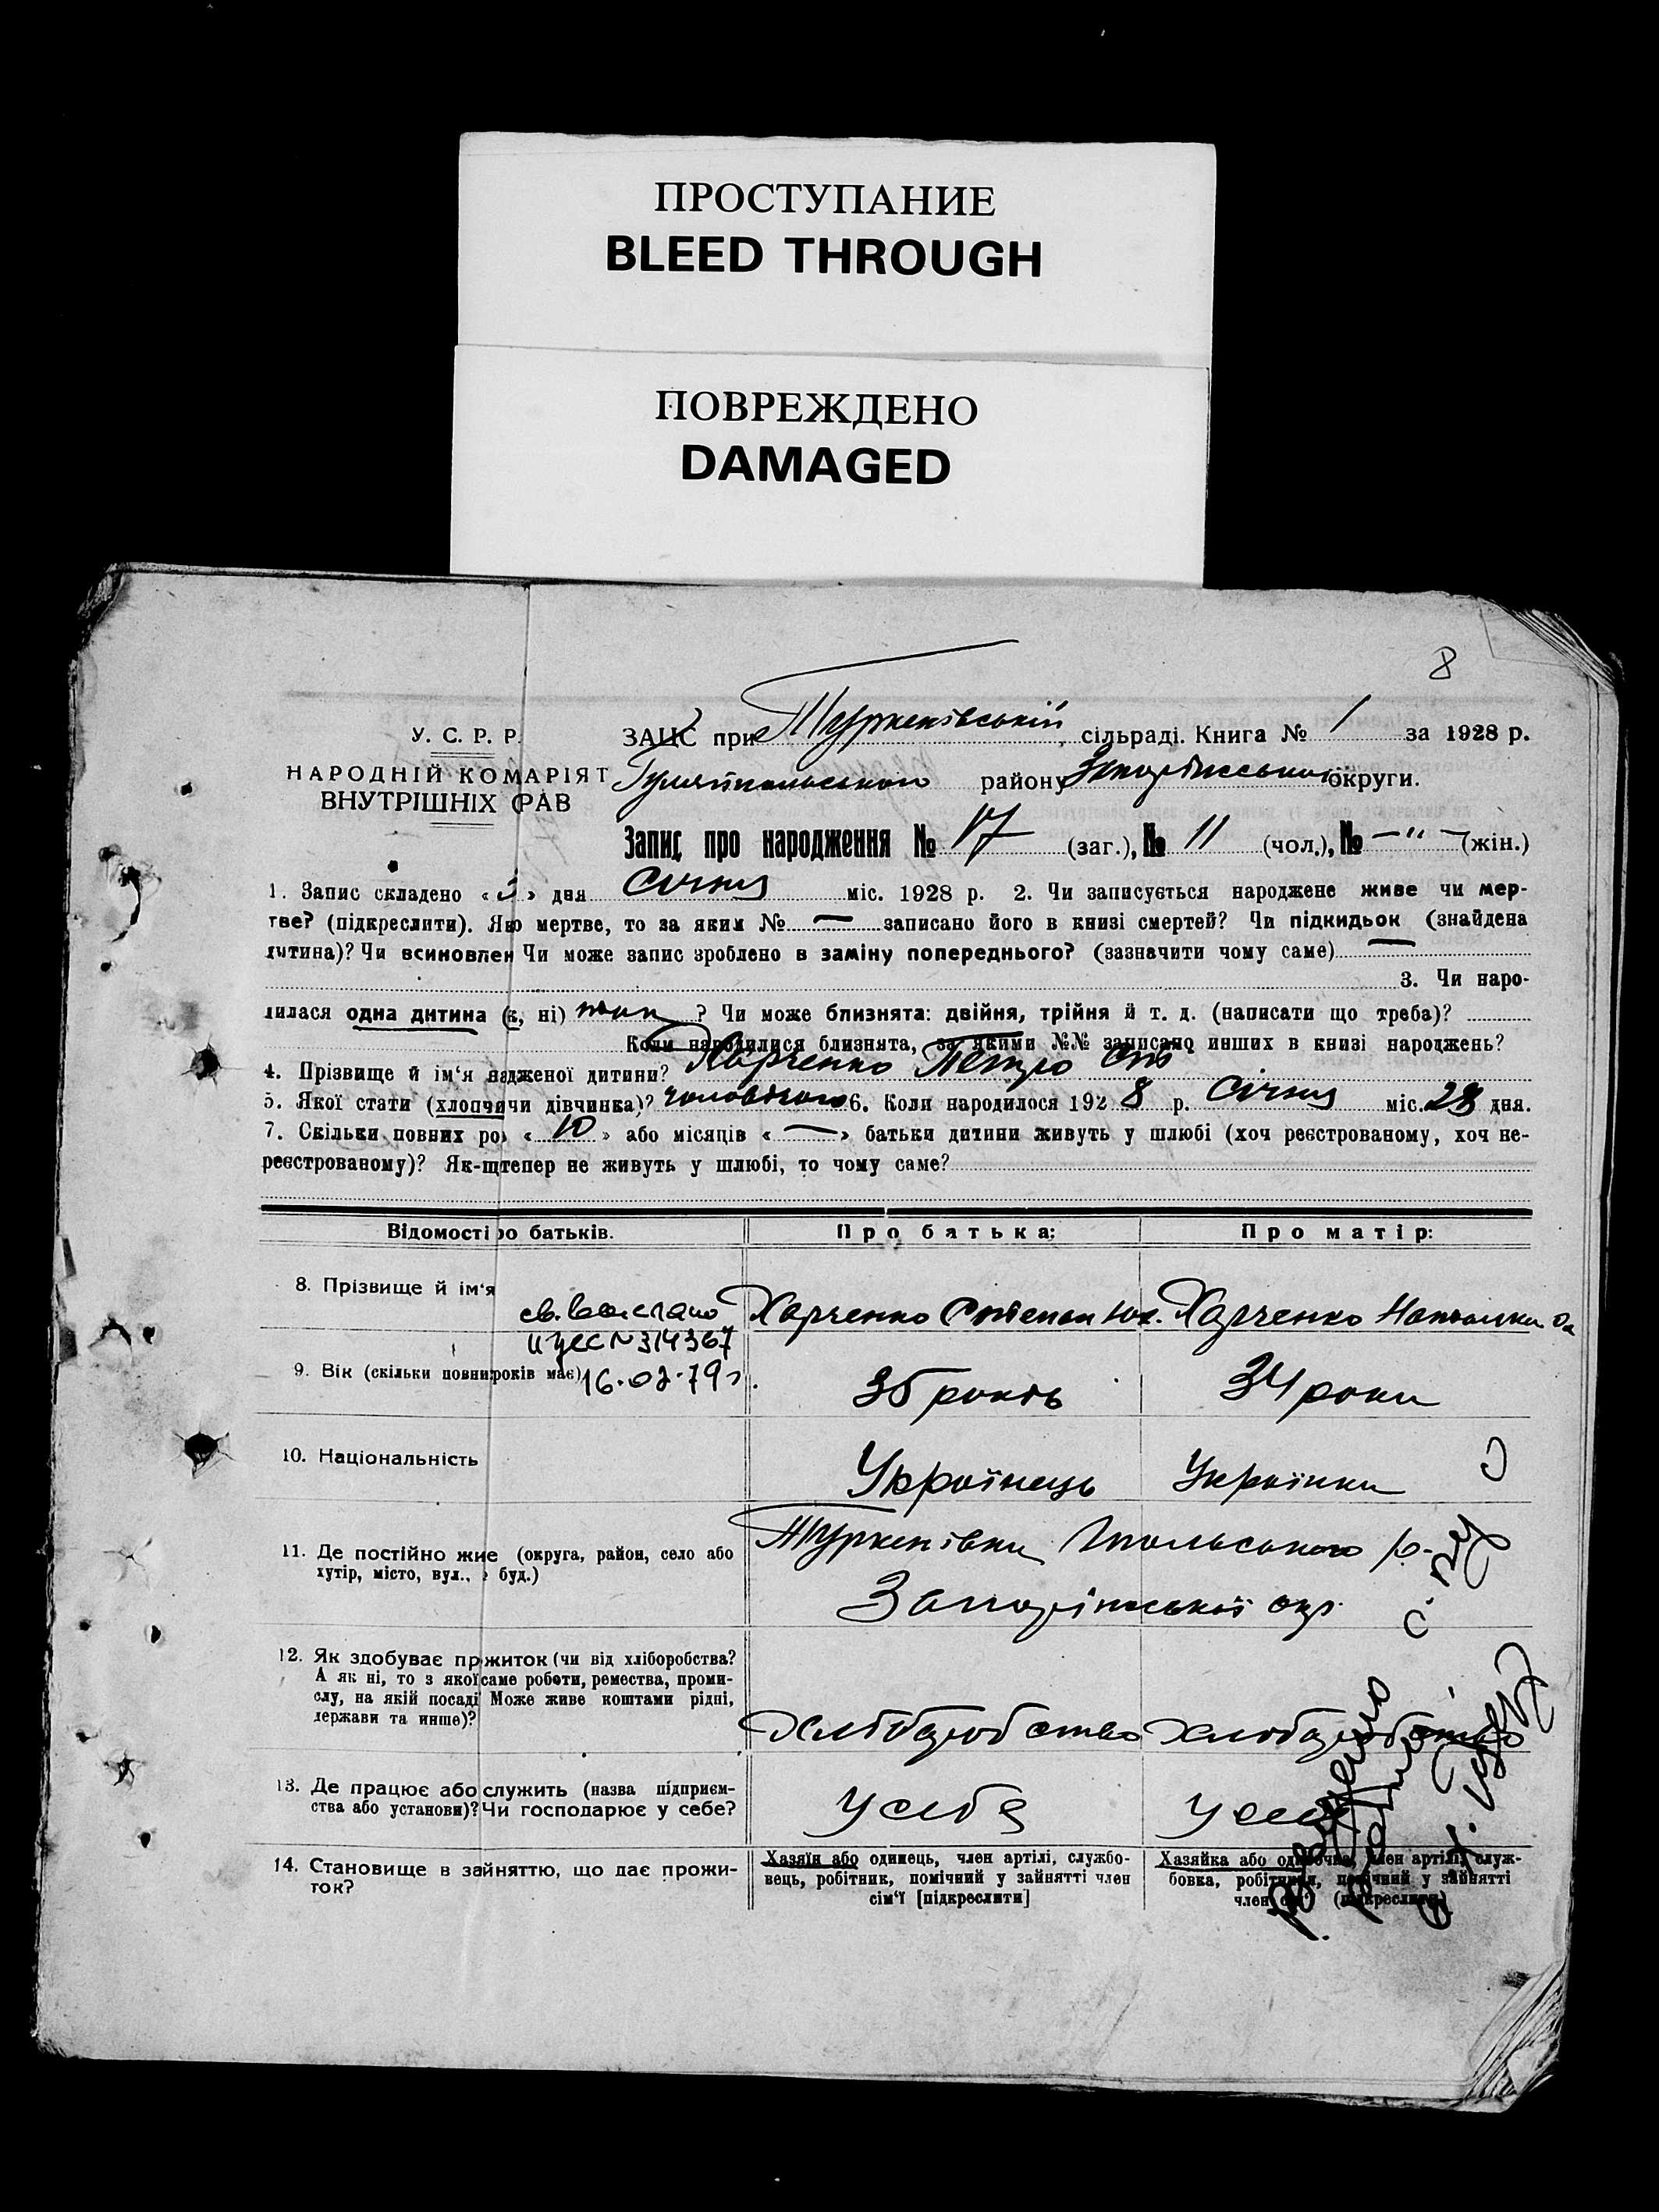 ПРОСТУПАНИЕ
BLEED THROUGH
ПОВРЕЖДЕНО
DAMAGED
8
У. С. Р. Р.
НАРОДНІЙ КОМАРІЯТ
ВНУТРІШНІХ СРАВ
ЗАЦС при Туркенівській сільраді. Книга № 1 за 1928 р.
Гуляйпільського району Запорізської округи.
Запис про народження № 17 (заг.), № 11 (чол.), № — " — (жін.)
1. Запис складено « » дня Січня міс. 1928 р. 2. Чи записується народжене живе чи мер-
тве? (підкреслити). Якo мертве, то за яким № — записано його в книзі смертей? Чи підкидьок (знайдена
дитина)? Чи всиновлен Чи може запис зроблено в заміну попереднього? (зазначити чому саме) —
3. Чи наро-
дилася одна дитина (к, ні) так ? Чи може близнята: двійня, трійня й т. д. (написати що треба)?
Коли народилися близнята, за якими №№ записано инших в книзі народжень?
4. Прізвище й ім'я надженої дитини? Харченко Петро Сте
5. Якої стати (хлопчи чи дівчинка)? чоловічого 6. Коли народилося 1928 р. Січня міс. 28 дня.
7. Скільки повних рок « 10 » або місяців « — » батьки дитини живуть у шлюбі (хоч реєстрованому, хоч не-
реєстрованому)? Як-щ тепер не живуть у шлюбі, то чому саме?
Відомості ро батьків.
Про батька:
Про матір:
8. Прізвище й ім'я
св. выслано
№ 314367
16.02.79 г.
Харченко Степан Юх.
Харченко Наталка
9. Вік (скільки повни років має)
35 років
34 роки
10. Національність
Українець
Українка
11. Де постійно жие (округа, район, село або
хутір, місто, вул., буд.)
Туркенівка Гпольського р-
Запорізської окр.
12. Як здобуває прожиток (чи від хліборобства?
А як ні, то з якої саме роботи, ремества, проми-
слу, на якій посаді Може живе коштами рідні,
держави та инше)?
Хліборобство
хліборобство
13. Де працює або служить (назва підприєм-
ства або установи)? Чи господарює у себе?
У себе
У себе
14. Становище в зайняттю, що дає прожи-
ток?
Хазяїн або одинець, член артілі, службо-
вець, робітник, помічний у зайнятті член
сім'ї [підкреслити]
Хазяйка або одиночка, член артілі, служ-
бовка, робітниця, помічний у зайнятті
член сім'ї (підкреслити)